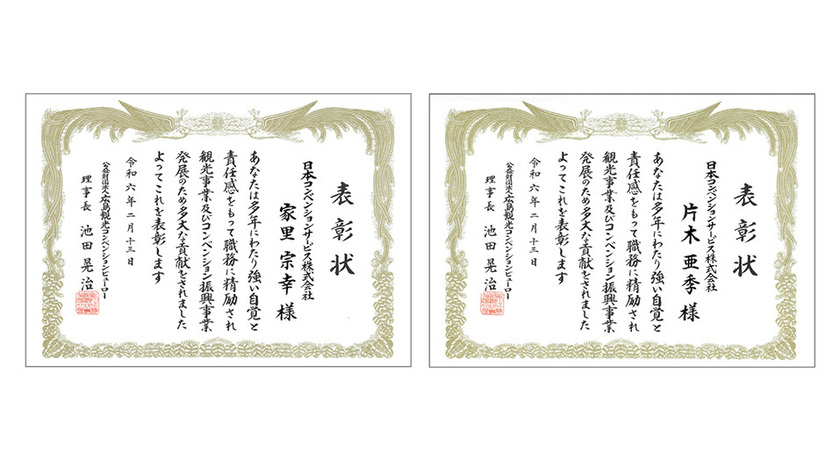 表彰状
日本コンベンションサービス株式会社
家里宗幸様
あなたは多年にわたり強い自覚と
責任感をもって職務に精励され
観光事業及びコンベンション振興事業
発展のため多大な貢献をされました
よってこれを表彰します
令和六年二月十三日
公益財団法人広島観光コンベンションビューロー
理事長 池田晃治
表彰状
日本コンベンションサービス株式会社
片木亜季様
あなたは多年にわたり強い自覚と
責任感をもって職務に精励され
観光事業及びコンベンション振興事業
発展のため多大な貢献をされました
よってこれを表彰します
令和六年二月十三日
公益財団法人広島観光コンベンションビューロー
理事長 池田晃治